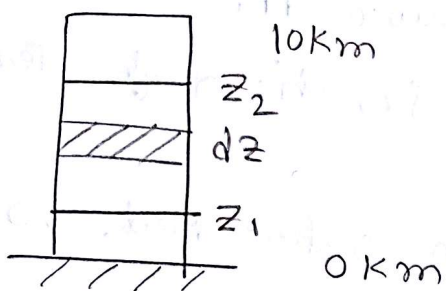 10Km
Z2
dz
Z1
0Km